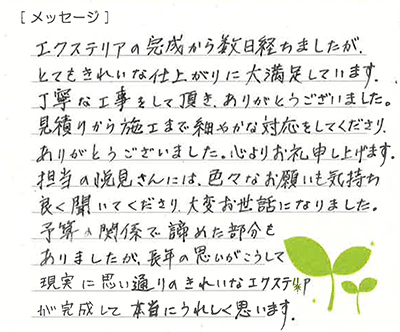 [ メッセージ ]
エクステリアの完成から数日経ちましたが、
とてもきれいな仕上がりに大満足しています。
丁寧な工事をして頂き、ありがとうございました。
見積りから施工まで細やかな対応をしてくださり、
ありがとうございました。心よりお礼申し上げます。
担当の悦見さんには、色々なお願いも気持ち
良く聞いてくださり、大変お世話になりました。
予算の関係で諦めた部分も
ありましたが、長年の思いがこうして
現実に思い通りのきれいなエクステリア
が完成して本当にうれしく思います。